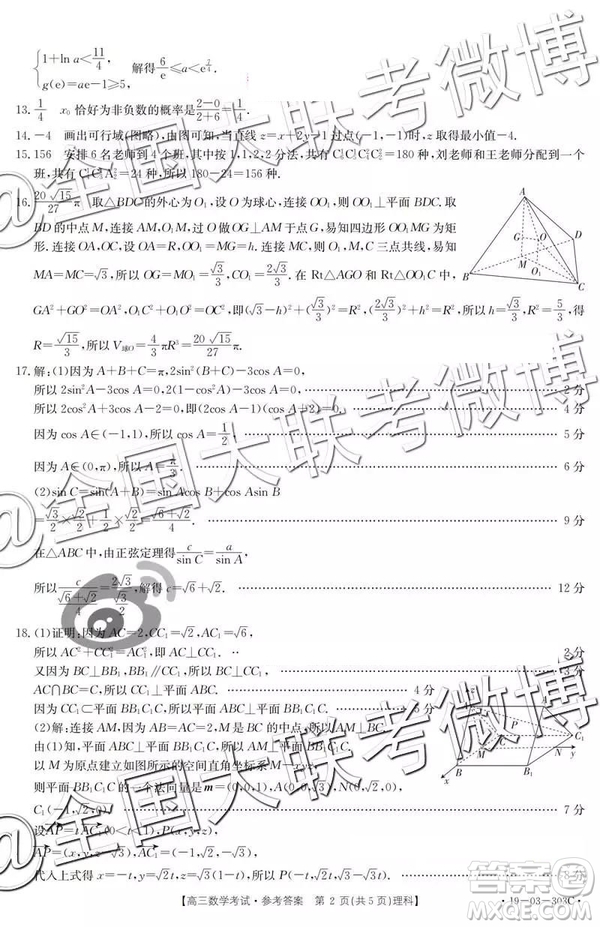 {1+ln a<11/4, g(e)=ae-1≥5, 解得6/e≤a<e^(7/4).
13. 1/4 x₀ 恰好为非负数的概率是(2-0)/(2+6)=1/4.
14. -4 画出可行域(图略),由图可知,当直线z=x+2y-1过点(-1,-1)时,z取得最小值-4.
15. 156 安排6名老师到4个班,其中按1,1,2,2分法,共有 =180种,刘老师和王老师分配到一个
班,共有 =24种,所以180-24=156种.
16. 20√15/27 π 取△BDC的外心为O₁,设O为球心,连接OO₁,则OO₁⊥平面
BDC.连接AO₁,取BD的中点M,连接AM,过O做OG⊥AM于点G,易知四边形OO₁MG为矩
形.连接OA,OC,OO₁=MG=h.连接MC,则O₁,M,C三点共线,易知
MA=MC=√3,所以OG=MO₁=√3/3,CO₁=2√3/3.在Rt△AGO和Rt△OO₁C中,
GA²+GO²=OA²,O₁C²+O₁O²=OC²,即(√3-h)²+(√3/3)²=R²,(2√3/3)²+h²=R²,所以h=√3/3,R²=5/3,得
R=√15/3,所以V球O=4/3πR³=20√15/27 π.
17.解:(1)因为A+B+C=π,2sin²(B+C)-3cos A=0,
所以2sin²A-3cos A=0,2(1-cos²A)-3cos A=0. 2分
所以2cos²A+3cos A-2=0,即(2cos A-1)(cos A+2)=0. 4分
因为cos A∈(-1,1),所以cos A=1/2. 5分
因为A∈(0,π),所以A=π/3. 6分
(2)sin C=sin(A+B)=sin Acos B+cos Asin B
=√3/2×√2/2+1/2×√2/2=(√6+√2)/4. 9分
在△ABC中,由正弦定理得c/sin C=a/sin A,
所以c/((√6+√2)/4)=2√3/(√3/2),解得c=√6+√2. 12分
18.(1)证明:因为AC=2,CC₁=√2,AC₁=√6,
所以AC²+CC₁²=AC₁²,即AC⊥CC₁. 2分
又因为BC⊥BB₁,BB₁∥CC₁,所以BC⊥CC₁. 3分
AC∩BC=C,所以CC₁⊥平面ABC. 4分
因为CC₁⊂平面BB₁C₁C,所以平面ABC⊥平面BB₁C₁C. 5分
(2)解:连接AM,因为AB=AC=2,M是BC的中点,所以AM⊥BC,
由(1)知,平面ABC⊥平面BB₁C₁C,所以AM⊥平面BB₁C₁C.
以M为原点建立如图所示的空间直角坐标系M-xyz,
则平面BB₁C₁C的一个法向量是m=(0,0,1),A(0,0,√3),
C₁(-1,√2,0). 7分
设AP=tAC₁(0<t<1),P(x,y,z),
AP=(x,y,z-√3),AC₁=(-1,√2,-√3),
代入上式得x=-t,y=√2t,z=√3(1-t),所以P(-t,√2t,√3-√3t). 8分
【高三数学考试·参考答案 第2页(共5页)理科】
·19-03-303C·
@全国大联考微博
@全国大联考微博
@全国大联考微博
作业精灵